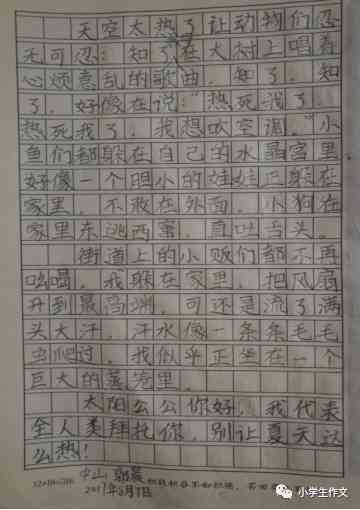 天空太热了让动物们忍
无可忍：知了在大树上唱着
心烦意乱的歌曲，知了，知
了，好像在说："热死我了，
热死我了，我想吹空调。"小
鱼们都躲在自己的水晶宫里，
好像一个胆小的娃娃正躲在
家里，不敢在外面，小狗在
家里东逃西窜，直吐舌头。
街道上的小贩们都不再
吆喝，我躲在家里，把风扇
开到最高端，可还是流了满
头大汗，汗水像一条条毛毛
虫爬过，我似乎正坐在一个
巨大的蒸笼里。
太阳公公你好，我代表
全人类拜托你，别让夏天这
么热！
小学生作文